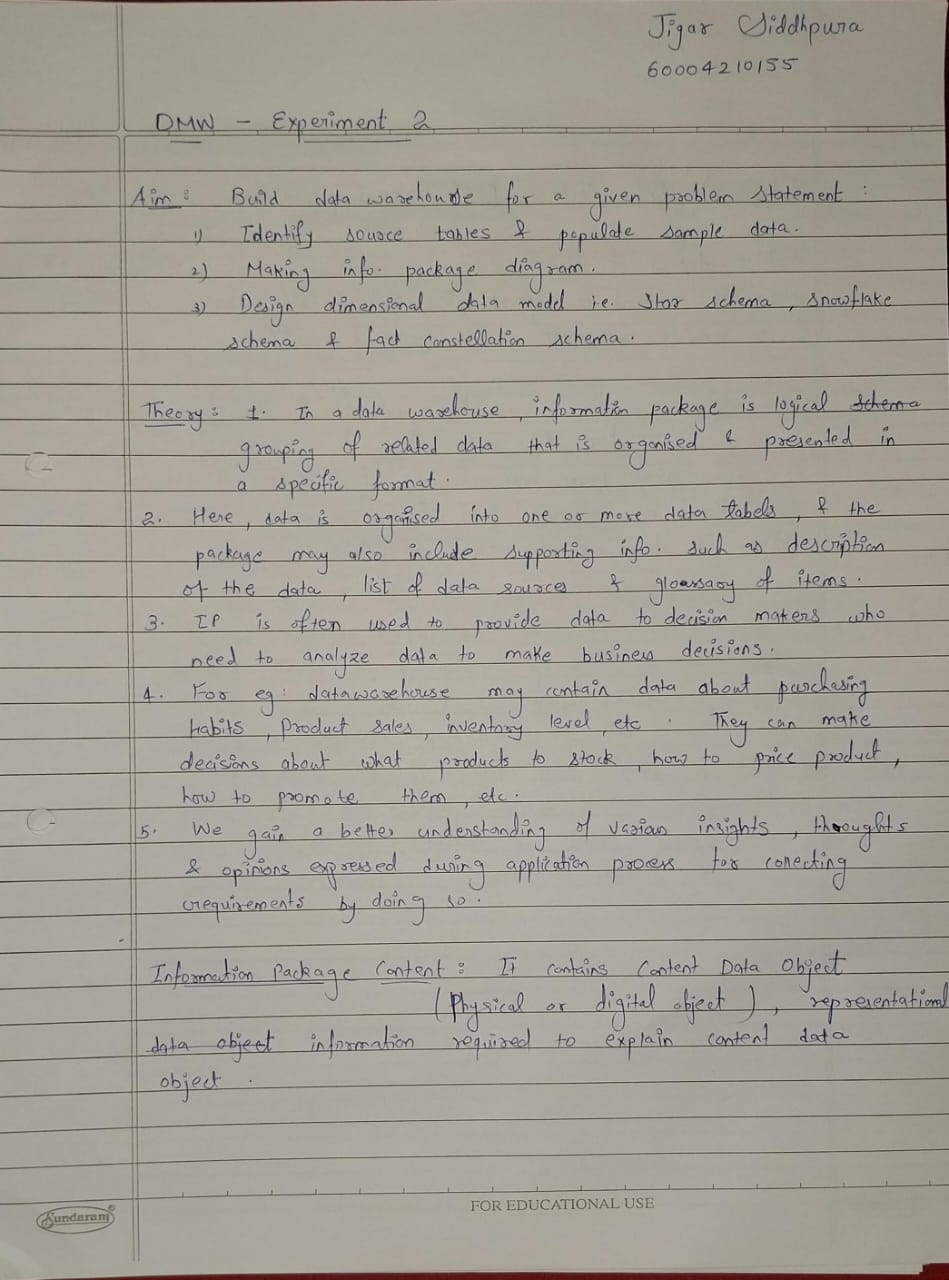 Jigar Siddhpura
60004210155
DMW - Experiment 2
Aim : Build data warehouse for a given problem statement :
1) Identify source tables & populate sample data.
2) Making info. package diagram.
3) Design dimensional data model i.e. Star schema, snowflake
schema & fact constellation schema.
Theory : 1. In a data warehouse, information package is logical schema
grouping of related data that is organised & presented in
a specific format.
2. Here, data is organised into one or more data tabels, & the
package may also include supporting info. such as description
of the data, list of data sources & gloassary of items.
3. IP is often used to provide data to decision makers who
need to analyze data to make business decisions.
4. For eg: datawarehouse may contain data about purchasing
habits, product sales, inventory level, etc. They can make
decisions about what products to stock, how to price product,
how to promote them, etc.
5. We gain a better understanding of various insights, thoughts
& opinions expressed during application process for collecting
requirements by doing so.
Information Package Content : It contains Content Data Object
(Physical or digital object), representational
data object information required to explain content data
object.
FOR EDUCATIONAL USE
Sundaram